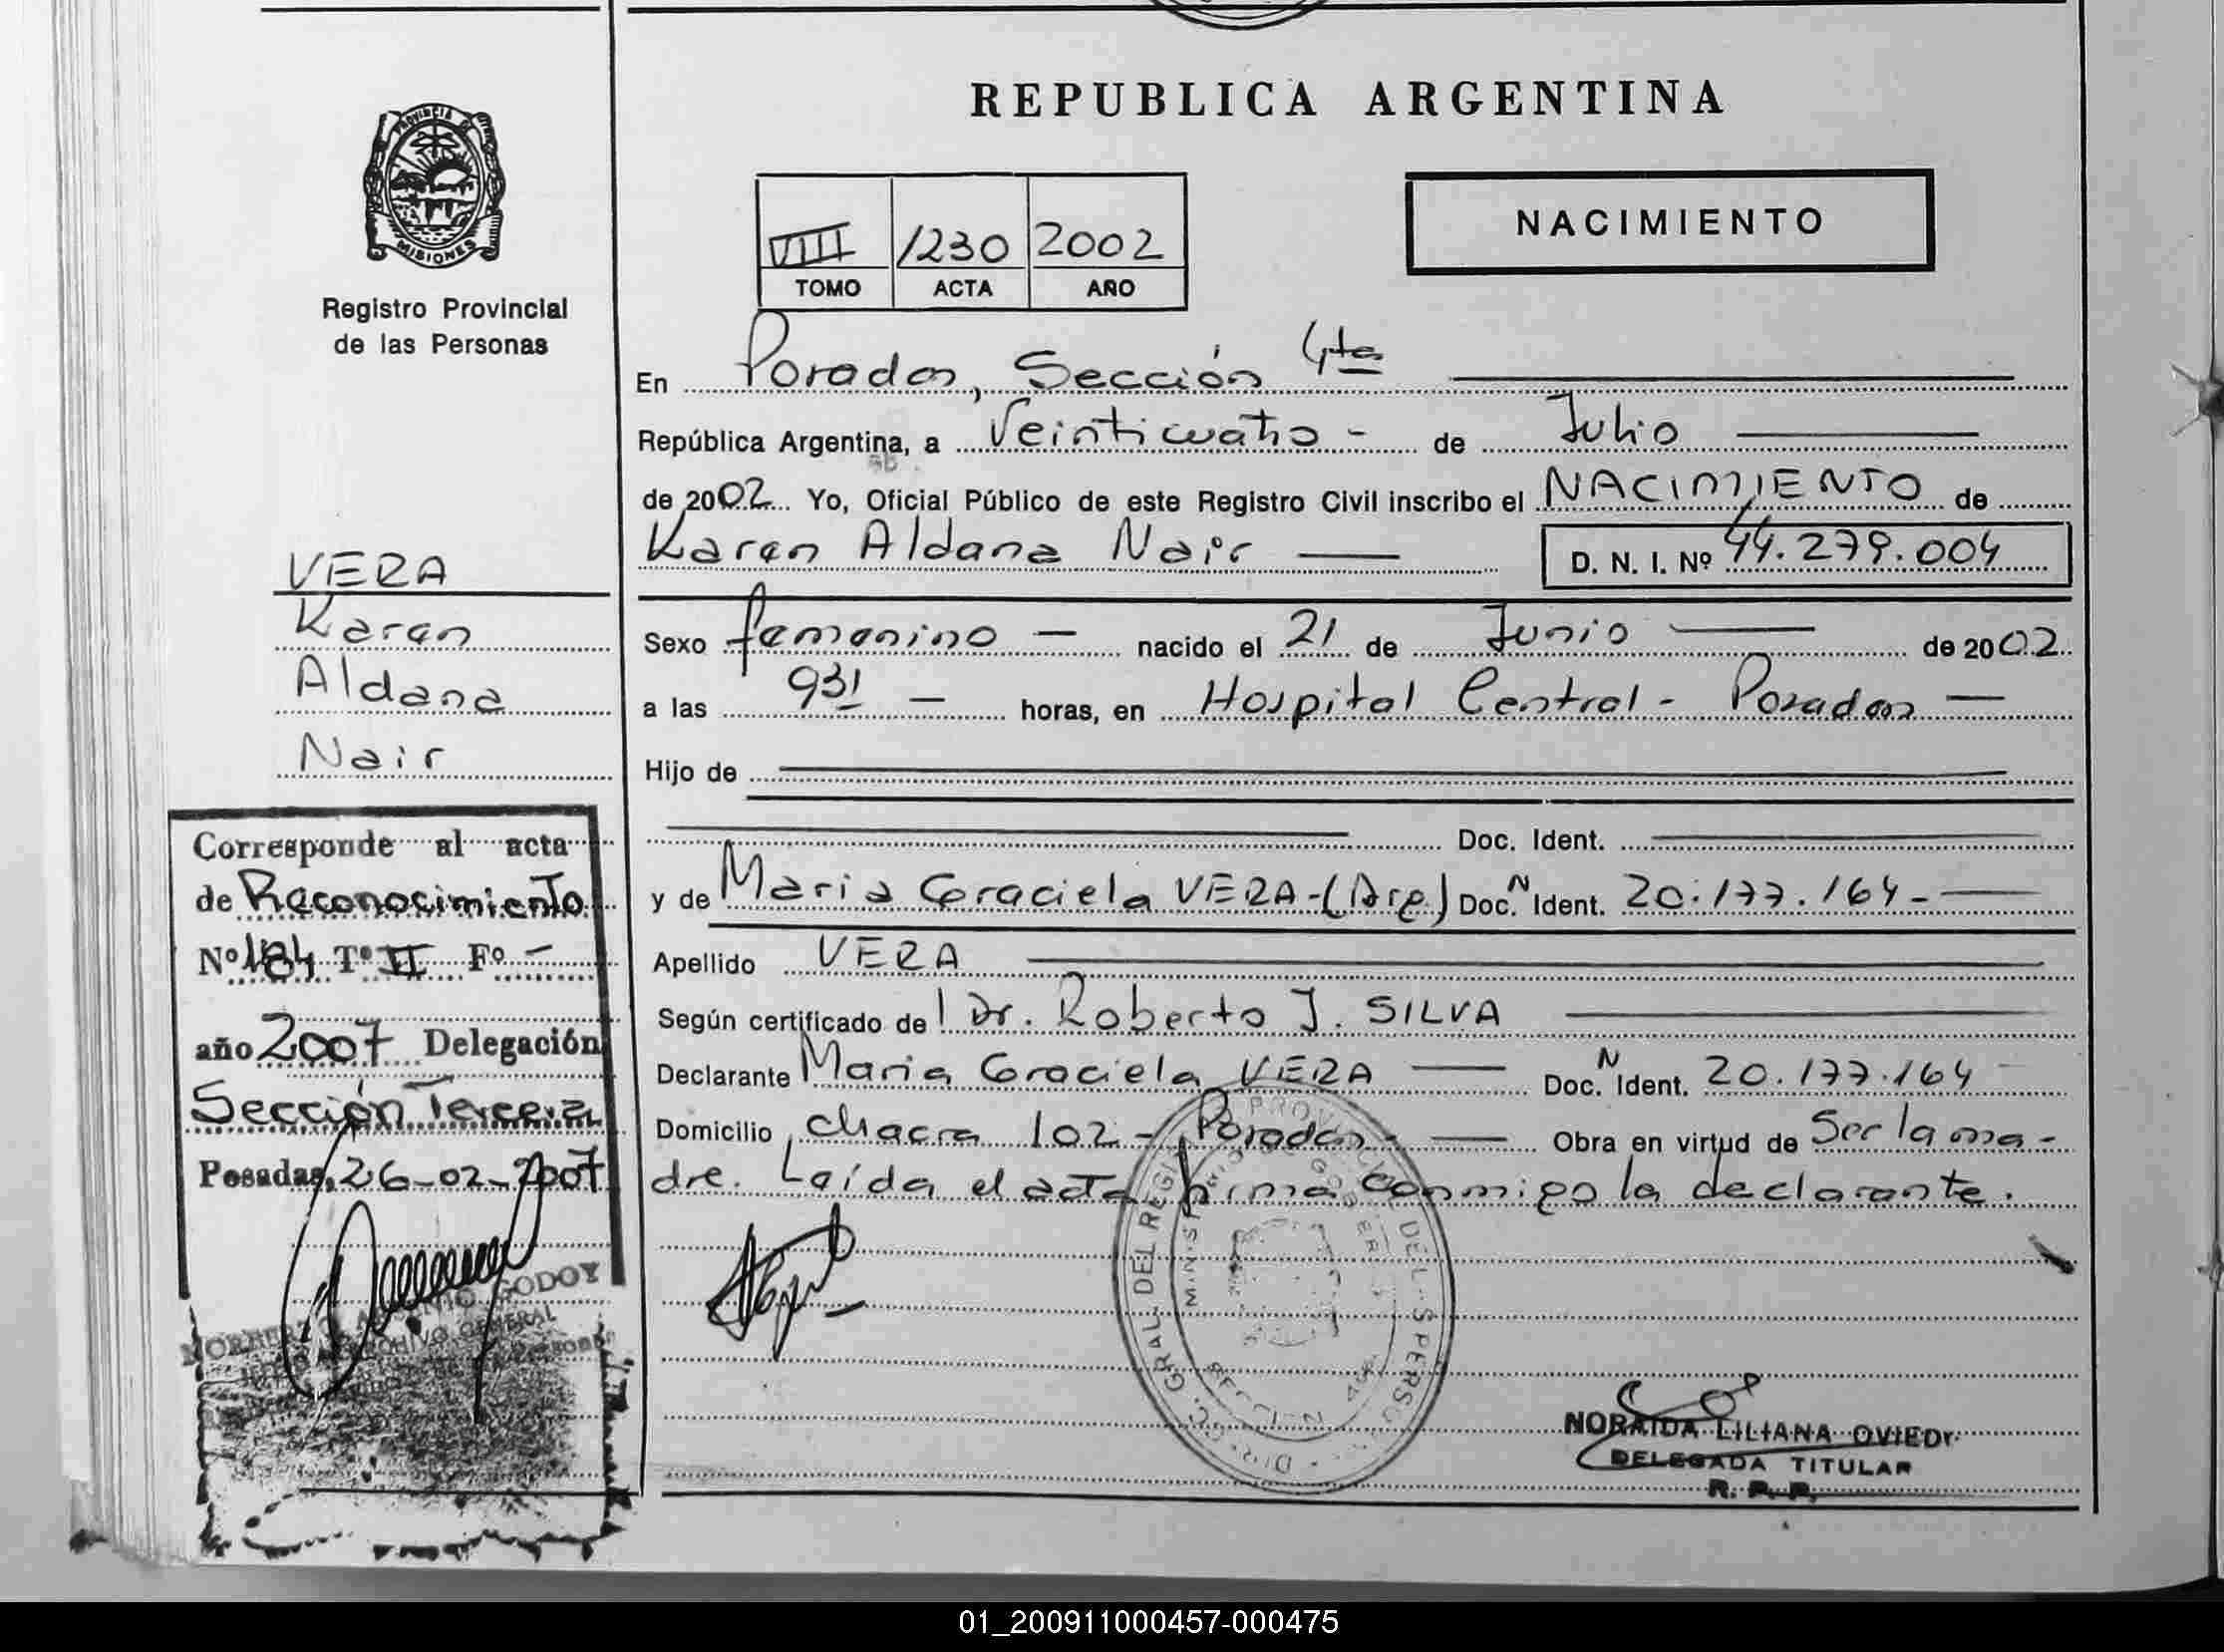 REPUBLICA ARGENTINA
PROVINCIA DE
MISIONES
Registro Provincial
de las Personas
VIII 1230 2002
TOMO ACTA AÑO
NACIMIENTO
En Posadas, Sección 4ta
República Argentina, a Veinticuatro - de Julio
de 2002 Yo, Oficial Público de este Registro Civil inscribo el NACIMIENTO de
Karen Aldana Nair D. N. I. Nº 44.279.004
Sexo femenino - nacido el 21 de Junio de 2002
a las 931 - horas, en Hospital Central - Posadas -
Hijo de
Doc. Ident.
y de Maria Graciela VERA-(Arg) Doc. N Ident. 20.177.164-
Apellido VERA
Según certificado de Dr. Roberto J. SILVA
Declarante Maria Graciela VERA Doc. N Ident. 20.177.164 -
Domicilio chacra 102 - Posadas - Obra en virtud de Ser la ma-
dre. Leída el acta firma conmigo la declarante.
VERA
Karen
Aldana
Nair
Corresponde al acta
de Reconocimiento
Nº 184 Tº II Fº -
año 2007 Delegación
Sección Tercera
Posadas, 26-02-2007
GODOY
ARCHIVO GENERAL
NORAIDA LILIANA OVIEDO
DELEGADA TITULAR
R. P. P.
01_200911000457-000475